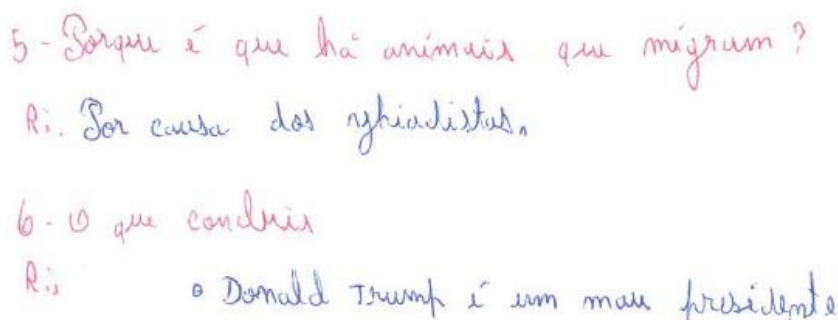 5-Porque é que há animais que migram?
R:. Por causa dos
6-O que concluis
R:, o Donald Trump é um mau presidente